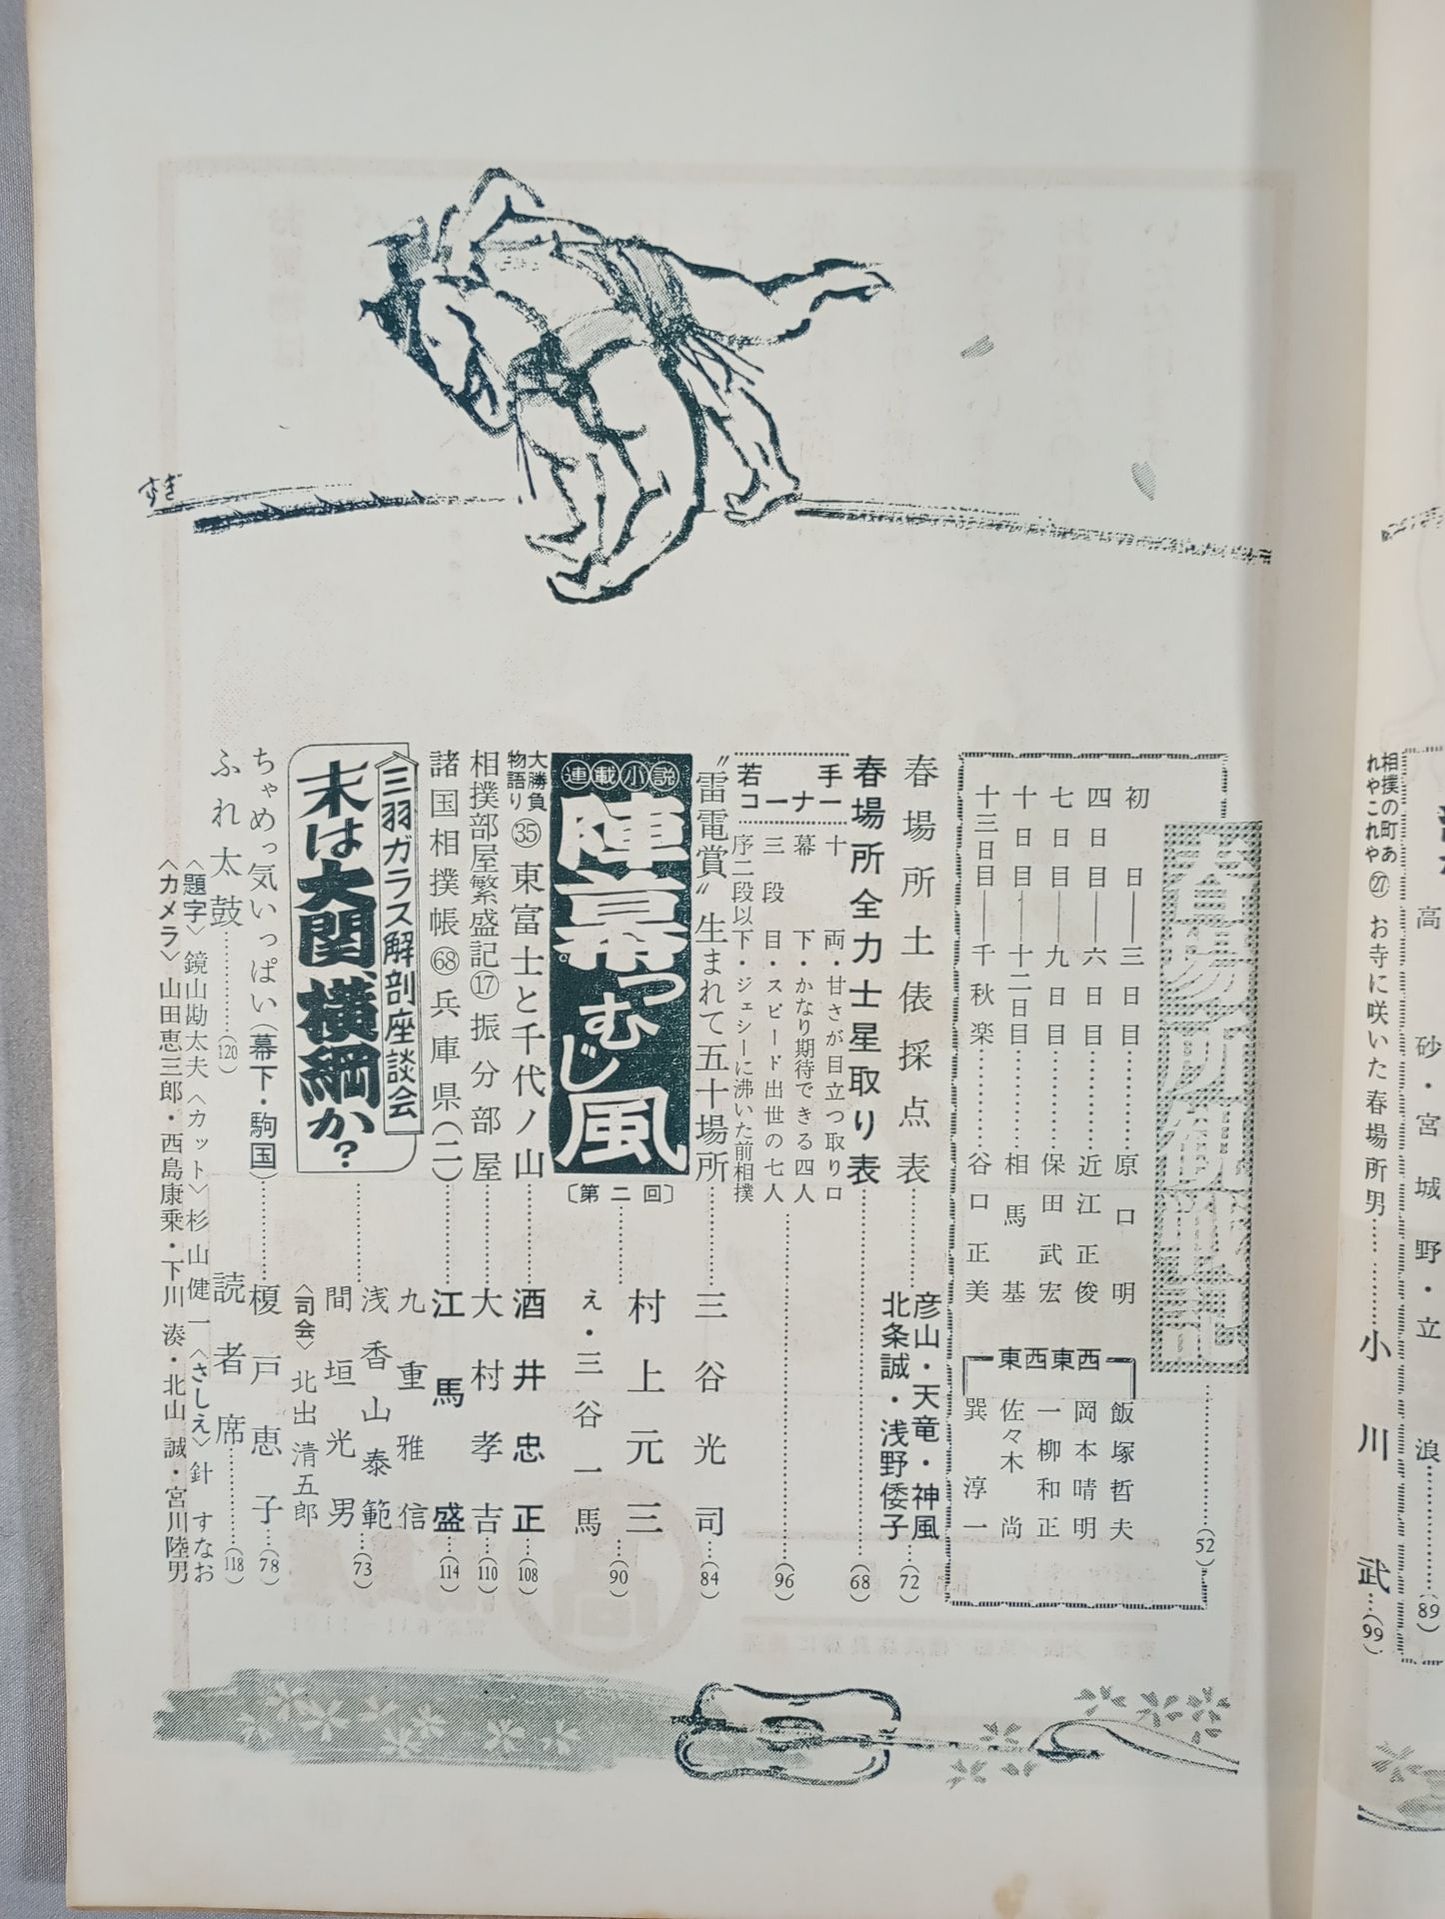 相撲の町あれやこれや㉗ お寺に咲いた春場所男……………小川武…(99)
高砂・宮城野・立浪…………(89)
春場所観戦記……………(52)
初日――三日目…………原口明
四日目――六日目…………近江正俊
七日目――九日目…………保田武宏
十日目――十二日目…………相馬基
十三日目――千秋楽…………谷口正美
東西東西
飯塚哲夫
岡本晴明
一柳和正
佐々木尚
巽淳一
春場所土俵採点表……………彦山・天竜・神風
北条誠・浅野倭子…(72)
春場所全力士星取り表……………(68)
若手コーナー
十両・甘さが目立つ取り口
幕下・かなり期待できる四人
三段目・スピード出世の七人
序二段以下・ジェシーに沸いた前相撲
……………(96)
〝雷電賞〟生まれて五十場所…………三谷光司…(84)
連載小説
陣幕つむじ風
〔第二回〕…………村上元三…(90)
え・三谷一馬
大勝負物語り㉟ 東富士と千代ノ山…………酒井忠正…(108)
相撲部屋繁盛記⑰振分部屋…………大村孝吉…(110)
諸国相撲帳68兵庫県(二)…………江馬盛…(114)
三羽ガラス解剖座談会
末は大関、横綱か?
九重雅信
浅香山泰範…(73)
間垣光男
〈司会〉北出清五郎
ちゃめっ気いっぱい(幕下・駒国)…………榎戸恵子…(78)
ふれ太鼓…………(120)
読者席…………(118)
〈題字〉鏡山勘太夫〈カット〉杉山健一〈さしえ〉針すなお
〈カメラ〉山田恵三郎・西島康乗・下川湊・北山誠・宮川陸男
すぎ